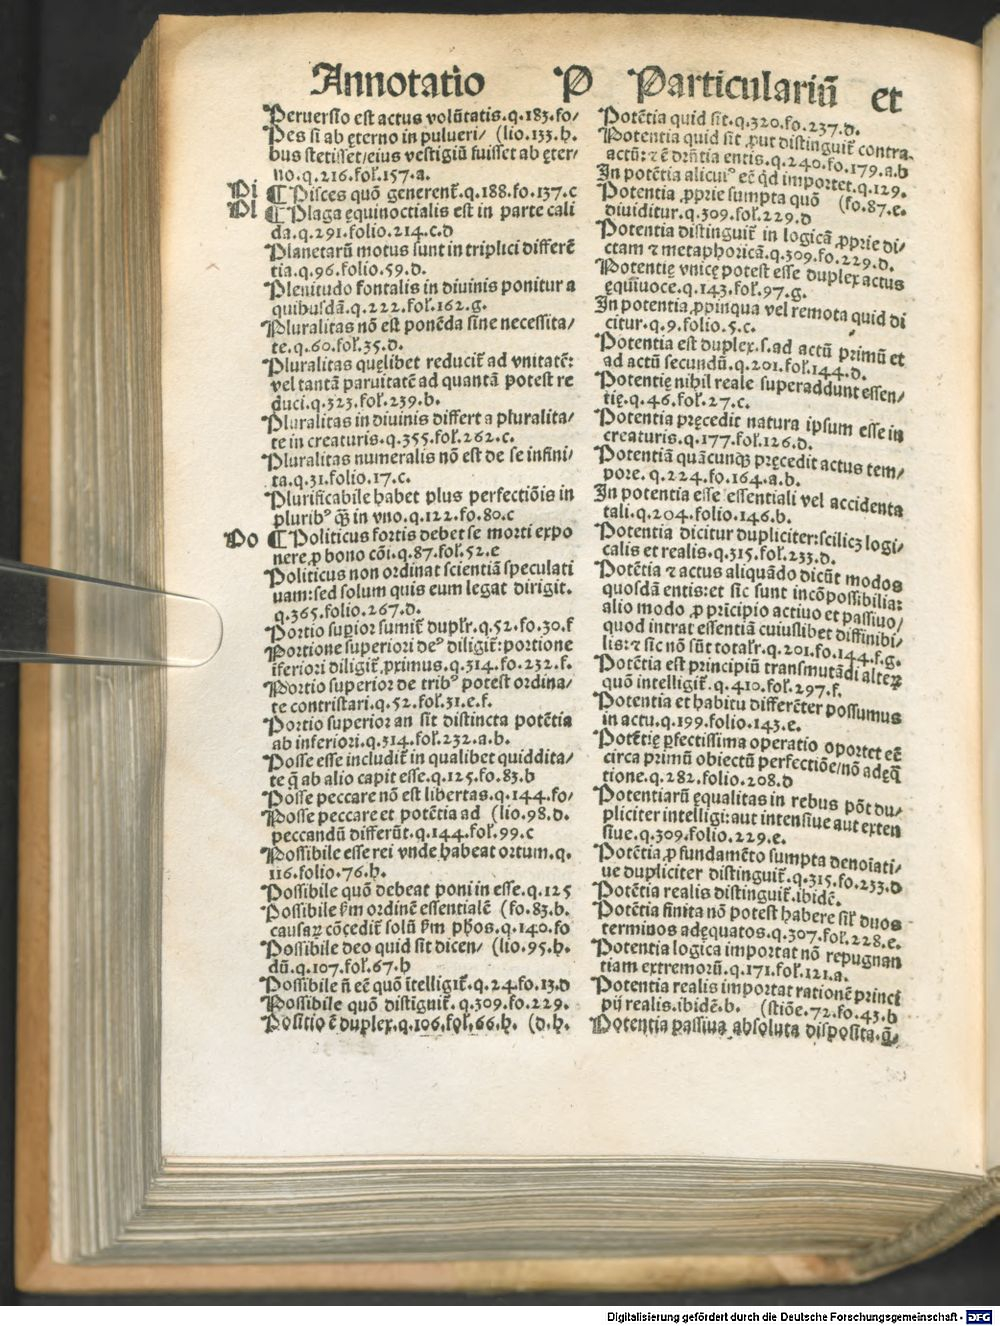 Annotatio P Particulariũ et
Peruersio est actus volũtatis.q.183.fo/
Pes si ab ęterno in pulueri/ (lio.133.h.
bus stetisset/eius vestigiũ fuisset ab ęter/
no.q.216.fol̃.157.a.
Pi ¶ Pisces quõ generent᷑.q.188.fo.137.c
Pl ¶ Plaga ęquinoctialis est in parte cali
da.q.291.folio.214.c.d
Planetarũ motus sunt in triplici differẽ
tia.q.96.folio.59.d.
Plenitudo fontalis in diuinis ponitur a
quibusdã.q.222.fol̃.162.g.
Pluralitas nõ est ponẽda sine necessita/
te.q.60.fol̃.35.d.
Pluralitas quęlibet reducit᷑ ad vnitatẽ:
vel tantã paruitatẽ ad quantã potest re
duci.q.323.fol̃.239.b.
Pluralitas in diuinis differt a pluralita/
te in creaturis.q.355.fol̃.262.c.
Pluralitas numeralis nõ est de se infini/
ta.q.31.folio.17.c.
Plurificabile habet plus perfectiõis in
plurib⁹ q̃̃ in vno.q.122.fo.80.c
Po ¶ Politicus fortis debet se morti expo
nere ꝓ bono cõi.q.87.fol̃.52.e
Politicus non ordinat scientiã speculati
uam:sed solum quis eum legat dirigit.
q.365.folio.267.d.
Portio supior sumit᷑ duplr̃.q.52.fo.30.f
Portione superiori de⁹ diligit᷑:portione
ĩferiori diligit᷑ ꝓximus.q.314.fo.232.f.
Portio superior de trib⁹ potest ordina/
te contristari.q.52.fol̃.31.e.f.
Portio superior an sit distincta potẽtia
ab inferiori.q.314.fol̃.232.a.b.
Posse esse includit᷑ in qualibet quiddita/
te q̃ ab alio capit esse.q.125.fo.83.b
Posse peccare nõ est libertas.q.144.fo/
Posse peccare et potẽtia ad (lio.98.d.
peccandũ differũt.q.144.fol̃.99.c
Possibile esse rei vnde habeat ortum.q.
116.folio.76.h.
Possibile quõ debeat poni in esse.q.125
Possibile ẜm ordinẽ essentialẽ (fo.83.b.
causaꝝ cõcedit᷑ solũ ẜm pħos.q.140.fo
Possibile deo quid sit dicen/ (lio.95.h.
dũ.q.107.fol̃.67.h
Possibile ñ eẽ quõ ĩtelligit᷑.q.24.fo.13.d
Possibile quõ distiguit᷑.q.309.fo.229.
Positio ẽ duplex.q.106.fol̃.66.h. (d.h.
Potẽtia quid sit.q.320.fo.237.d.
Potentia quid sit ꝓut distinguit᷑ contra
actũ:⁊ ẽ dr̃ñtia entis.q.240.fo.179.a.b
In potẽtia alicui⁹ eẽ qd̃ importet.q.129.
Potentia ꝓprie sumpta quõ (fo.87.e.
diuiditur.q.309.fol̃.229.d
Potentia distinguit᷑ in logicã ꝓprie di/
ctam ⁊ metaphoricã.q.309.fo.229.d.
Potentię vnicę potest esse duplex actus
ęquiuoce.q.143.fol̃.97.g.
In potentia ꝓpinqua vel remota quid di
citur.q.9.folio.5.c.
Potentia est duplex.s.ad actũ primũ et
ad actũ secundũ.q.201.fol̃.144.d.
Potentię nihil reale superaddunt essen/
tię.q.46.fol̃.27.c.
Potentia pręcedit natura ipsum esse in
creaturis.q.177.fol̃.126.d.
Potentiã quãcunqꝫ pręcedit actus tem/
pore. q.224.fo.164.a.b.
In potentia esse essentiali vel accidenta
tali.q.204.folio.146.b.
Potentia dicitur dupliciter:scilicꝫ logi/
calis et realis.q.315.fol̃.233.d.
Potẽtia ⁊ actus aliquãdo dicũt modos
quosdã entis:et sic sunt incõpossibilia:
alio modo ꝓ pricipio actiuo et passiuo/
quod intrat essentiã cuiuslibet diffinibi/
lis:⁊ sic nõ sũt totalr̃.q.201.fo.144.f.g.
Potẽtia est principiũ transmutãdi alteꝝ
quõ intelligit᷑.q.410.fol̃.297.f.
Potentia et habitu differẽter possumus
in actu.q.199.folio.143.e.
Potẽtię pfectissima operatio oportet eẽ
circa primũ obiectũ perfectiõe/nõ adęq̃
tione.q.282.folio.208.d
Potentiarũ ęqualitas in rebus põt du/
pliciter intelligi:aut intensiue aut exten
siue.q.309.folio.229.e.
Potẽtia ꝓ fundamẽto sumpta denoĩati/
ue dupliciter distinguit᷑.q.315.fo.233.d
Potẽtia realis distinguit᷑.ibidẽ.
Potẽtia finita nõ potest habere sil̃ duos
terminos adęquatos.q.307.fol̃.228.e.
Potentia logica importat nõ repugnan
tiam extremorũ.q.171.fol̃.121.a.
Potentia realis importat rationẽ princi
pij realis.ibidẽ.b. (stiõe.72.fo.43.b
Potentia passiua absoluta disposita.q̃/
Digitalisierung gefördert durch die Deutsche Forschungsgemeinschaft - DFG